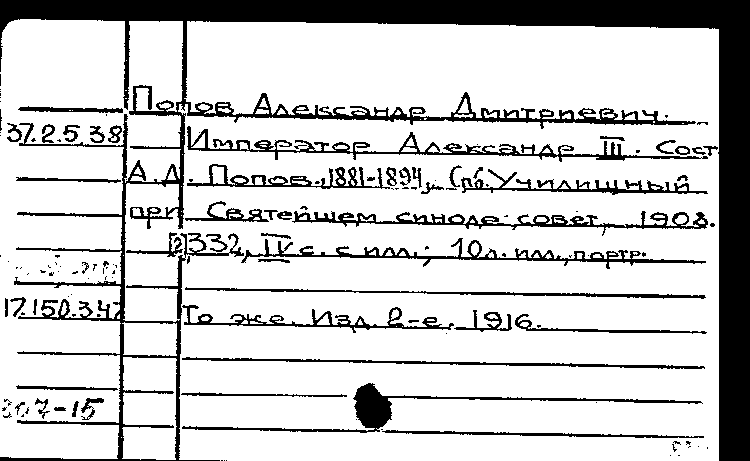 Попов, Александр Дмитриевич.
37.2.5.38 Император Александр III. Сост.
А. Д. Попов. 1881-1894, Спб. Училищный
при Святейшем синоде совет, 1908.
[2], 332, IV с. с илл.; 10 л. илл., портр.
17.150.3.47 То же. Изд. 2-е. 1916.
807-15